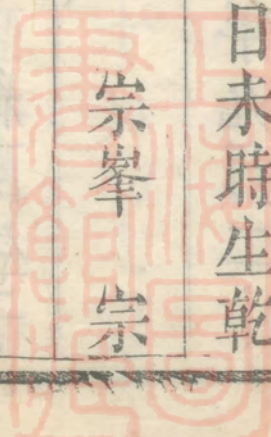 日未時生乾
崇峯 崇